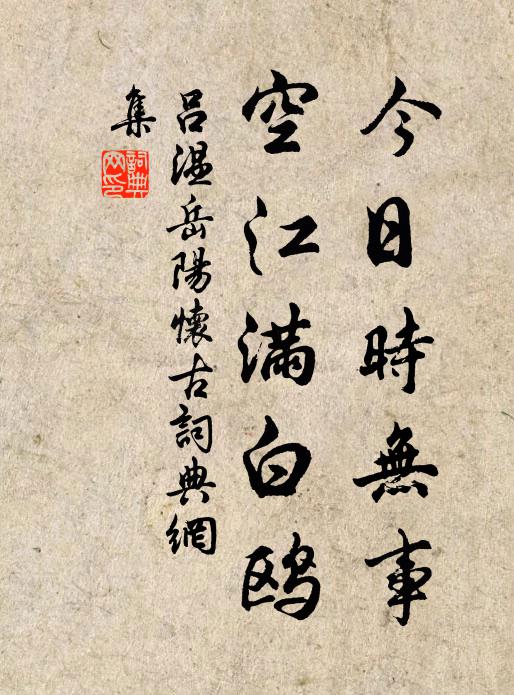 今日時無事
空江滿白鷗
呂溫岳陽懷古詞典網
集
詞典
网印